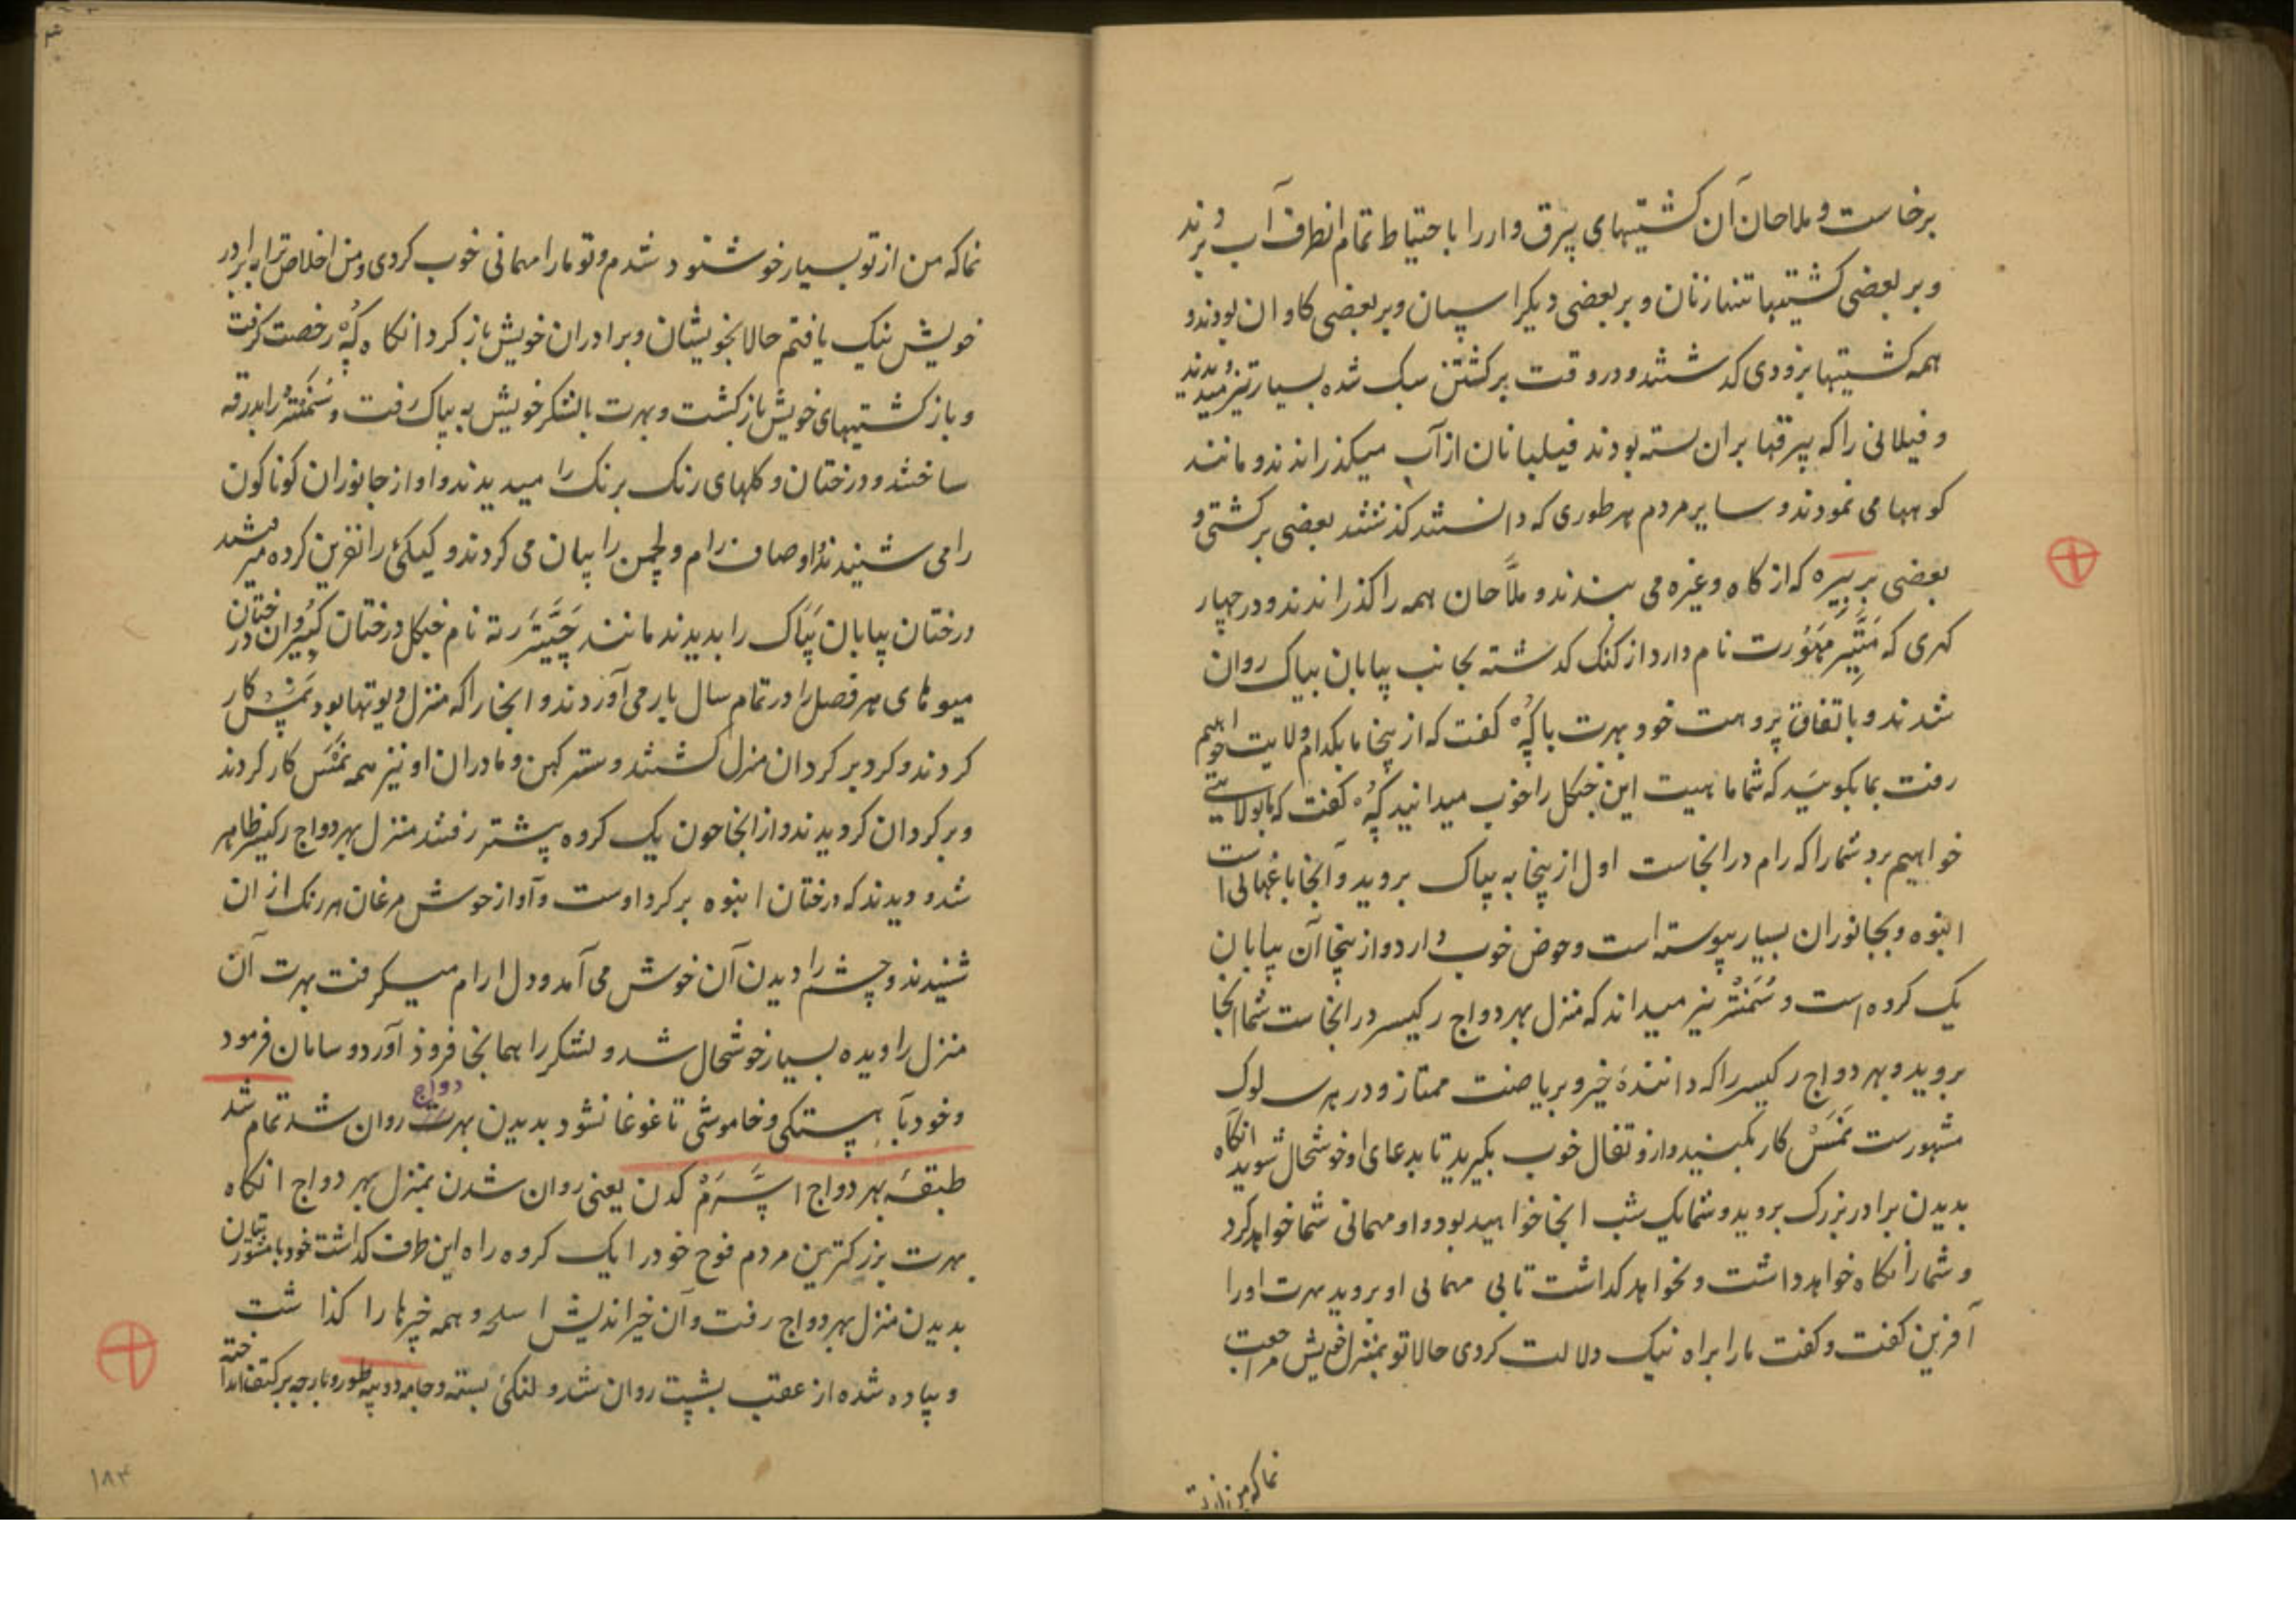 برخاست و ملاحان آن کشتیهای بیرق وار را باحتیاط تمام انطرف آب بردند
و بر بعضی کشتیها تنها زنان و بر بعضی دیگر اسپان و بر بعضی کاوان بودند و
همه کشتیها بزودی کدشتند و در وقت برکشتن سبک شده بسیار تیز میدویدند
و فیلانی را که بیرقها بران بسته بودند فیلبانان از آب میکذرانذند و مانند
کوهها می نمودند و سایر مردم بهر طوری که دانستند کذشتند بعضی بر کشتی و
بعضی بر بیره که از کاه و غیره می بندند و ملّاحان همه را کذرانذند و در چهار
کهری که مَتِّیر مَهَوُرت نام دارد از کنک کدشته بجانب بیابان بیاک روان
شدند و باتفاق پروهت خود بهرت با کُهْ کفت که از ینجا ما بکدام ولایت خواهیم
رفت بما بکوئید که شما ماهیت این جنکل را خوب میدانید کُهْ کفت که ما بولایتی
خواهیم برد شما را که رام در انجاست اول از ینجا به پیاک بروید و آنجا باغهائی است
انبوه و بجانوران بسیار پیوسته است و حوض خوب دارد و از ینجا آن بیابان
یک کروه است و سُمَنْتْر نیز میداند که منزل بهردواج رکیسر در انجاست شما انجا
بروید و بهردواج رکیسر را که دانندهٔ خیر و بریاضت ممتاز و در هر سلوک
مشهورست نَمَسْ کار بکنید و ازو تفال خوب بکیرید تا بدعای او خوشحال شوید انکاه
بدیدن برادر بزرک بروید و شما یک شب انجا خواهید بود و او مهمانی شما خواهد کرد
و شما را نکاه خواهد داشت و نخواهد کداشت تا بی مهمانی او بروید بهرت او را
آفرین کفت و کفت ما را براه نیک دلالت کردی حالا تو بمنزل خویش مراجعت
نما که من از تو
نما که من از تو بسیار خوشنود شدم و تو ما را مهمانی خوب کردی و من اخلاص ترا برادر
خویش نیک یافتم حالا بخویشان و برادران خویش باز کرد انکاه کُهْ رخصت کرفت
و باز کشتیهای خویش باز کشت و بهرت بالشکر خویش به پیاک رفت و سُمَنْتْر را بدرقه
ساختند و درختان و کلهای رنک برنک را میدیدند و اواز جانوران کوناکون
را می شنیدند و اوصاف رام و لچمن را بیان می کردند و کیکئ را نفرین کرده میرفتند
درختان بیابان پیاک را بدیدند مانند چَیْتَر رته نام جنکل درختان کبیر و ان درختان
میوه‌های هر فصل را در تمام سال بار می آوردند و انجا را که منزل دیوتها بود نَمَسْ کار
کردند و کرد بر کردان منزل کشتند و سترکهن و مادران او نیز همه نَمَسْ کار کردند
و بر کردان کردیدند و از انجا چون یک کروه پیشتر رفتند منزل بهردواج رکیسر ظاهر
شد و دیدند که درختان انبوه بر کرد اوست و آواز خوش مرغان هر رنک از ان
شنیدند و چشم را دیدن آن خوش می آمد و دل ارام میکرفت بهرت آن
منزل را دیده بسیار خوشحال شد و لشکر را همانجا فرود آورد و سامان فرمود
و خود بآهستکی و خاموشی تا غوغا نشود بدیدن بهرت دواج روان شد تمام شد
طبقهٔ بهردواج اسَّرَمْ کدن یعنی روان شدن بمنزل بهردواج انکاه
بهرت بزرکترین مردم فوج خود را یک کروه راه این طرف کداشت خود با مشورتیان
بدیدن منزل بهردواج رفت و آن خیراندیش اسلحه و همه چیزها را کذاشت
و پیاده شده از عقب بشپت روان شد و لنکئ بسته و جامه دوپته طور و پارچه بر کتف انداخته
۱۸۳